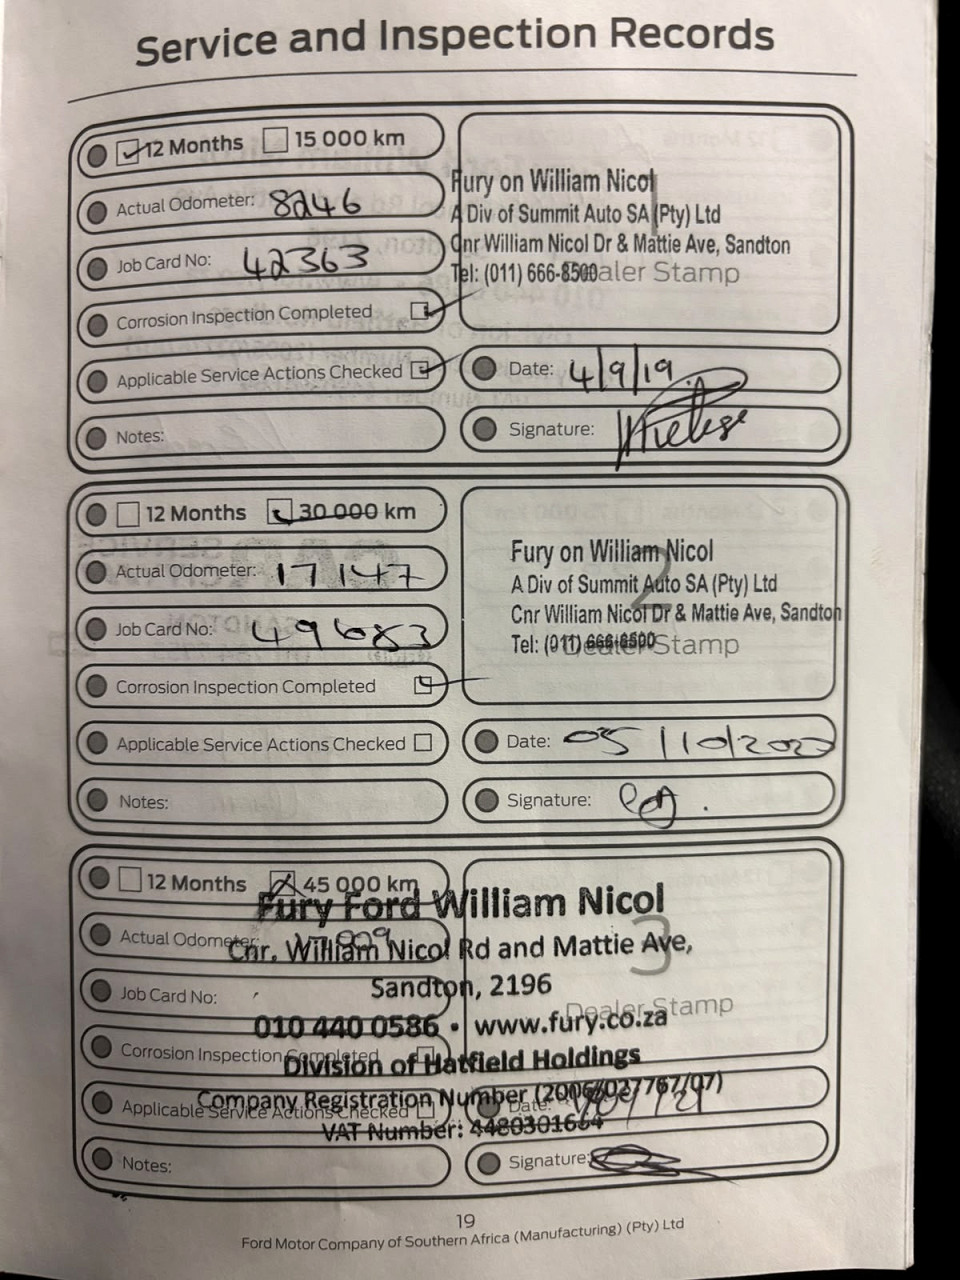 Service and Inspection Records
12 Months 15 000 km
Actual Odometer: 8246
Job Card No: 42363
Corrosion Inspection Completed
Applicable Service Actions Checked
Notes:
1
Fury on William Nicol
A Div of Summit Auto SA (Pty) Ltd
Cnr William Nicol Dr & Mattie Ave, Sandton
Tel: (011) 666-8500
Dealer Stamp
Date: 4/9/19
Signature:
12 Months 30 000 km
Actual Odometer: 17147
Job Card No: 49683
Corrosion Inspection Completed
Applicable Service Actions Checked
Notes:
2
Fury on William Nicol
A Div of Summit Auto SA (Pty) Ltd
Cnr William Nicol Dr & Mattie Ave, Sandton
Tel: (011) 666-8500
Dealer Stamp
Date: 05/10/2020
Signature:
12 Months 45 000 km
Actual Odometer:
Job Card No:
Corrosion Inspection Completed
Applicable Service Actions Checked
Notes:
3
Fury Ford William Nicol
Cnr. William Nicol Rd and Mattie Ave,
Sandton, 2196
010 440 0586 • www.fury.co.za
Division of Hatfield Holdings
Company Registration Number (2006/027767/07)
VAT Number: 4480301664
Dealer Stamp
Date:
Signature:
19
Ford Motor Company of Southern Africa (Manufacturing) (Pty) Ltd